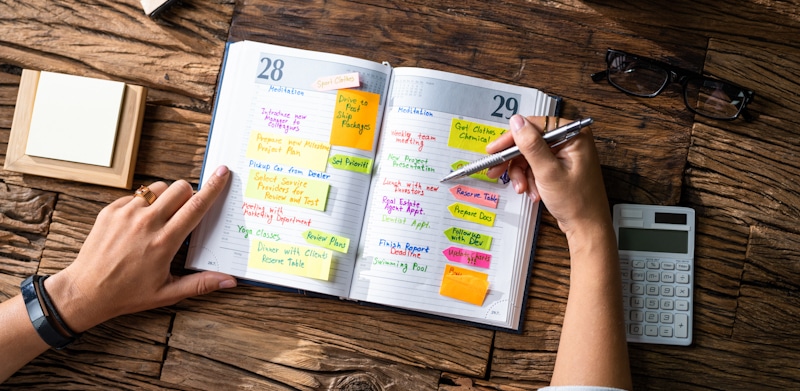 28
Sport Clothes
Meditation
Drive to
Post
Ship
Packages
Introduce new
Manager to
Colleagues
Prepare new
Project Plan
Set Priority
Pickup Car from Dealer
Select Service
Providers for
Review and Test
Meeting with
Marketing Department
Yoga Classes
Review Plans
Dinner with Clients
Reserve Table
29
Meditation
Get Clothes
from
Chemical
Weekly team
meeting
New Project
Presentation
Lunch with new
investors
Reserve Table
Real Estate
Agent Appt.
Prepare Docs
Dentist Appt.
Followup
with Dev
Finish Report
Deadline
Swimming Pool